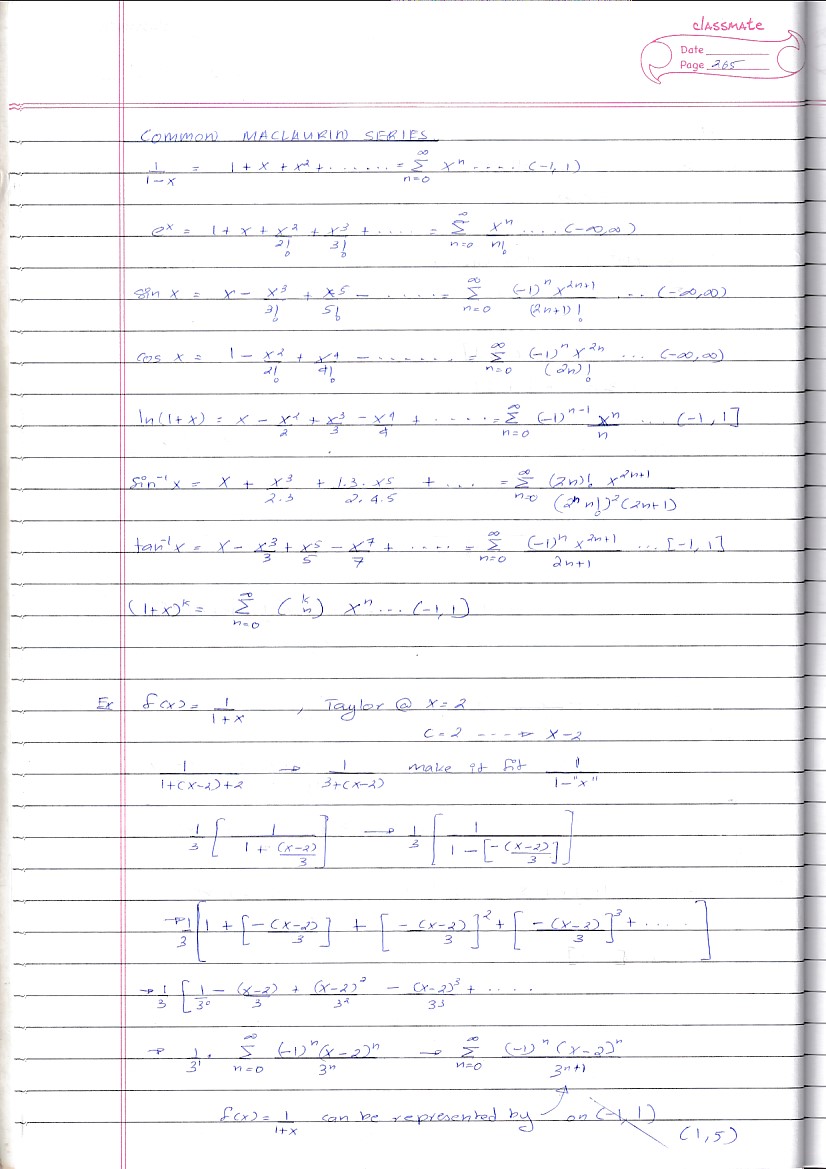 classmate
Date
Page 265
COMMON MACLAURIN SERIES
1/(1-x) = 1 + x + x² + ...... = Σ_{n=0}^{∞} xⁿ .... (-1, 1)
eˣ = 1 + x + x²/2! + x³/3! + .... = Σ_{n=0}^{∞} xⁿ/n! .... (-∞,∞)
sin x = x - x³/3! + x⁵/5! - ...... = Σ_{n=0}^{∞} (-1)ⁿ x²ⁿ⁺¹/(2n+1)! ... (-∞,∞)
cos x = 1 - x²/2! + x⁴/4! - ....... = Σ_{n=0}^{∞} (-1)ⁿ x²ⁿ/(2n)! ... (-∞,∞)
ln(1+x) = x - x²/2 + x³/3 - x⁴/4 + ..... = Σ_{n=0}^{∞} (-1)ⁿ⁻¹ xⁿ/n ... (-1, 1]
sin⁻¹x = x + x³/2.3 + 1.3.x⁵/2.4.5 + ... = Σ_{n=0}^{∞} (2n)! x²ⁿ⁺¹/(2ⁿ n!)²(2n+1)
tan⁻¹x = x - x³/3 + x⁵/5 - x⁷/7 + ..... = Σ_{n=0}^{∞} (-1)ⁿ x²ⁿ⁺¹/2n+1 ... [-1, 1]
(1+x)ᵏ = Σ_{n=0}^{∞} (k n) xⁿ ... (-1, 1)
Ex f(x) = 1/(1+x) , Taylor @ x=2
c=2 ----→ x-2
1/(1+(x-2)+2) → 1/(3+(x-2)) make it fit 1/(1-"x")
1/3 [ 1/(1 + (x-2)/3) ] → 1/3 [ 1/(1 - [-(x-2)/3]) ]
→ 1/3 [ 1 + [-(x-2)/3] + [-(x-2)/3]² + [-(x-2)/3]³ + ..... ]
→ 1/3 [ 1/3⁰ - (x-2)/3 + (x-2)²/3² - (x-2)³/3³ + .....
→ 1/3¹ . Σ_{n=0}^{∞} (-1)ⁿ(x-2)ⁿ/3ⁿ → Σ_{n=0}^{∞} (-1)ⁿ(x-2)ⁿ/3ⁿ⁺¹
f(x) = 1/(1+x) can be represented by on (-1, 1)
(1,5)